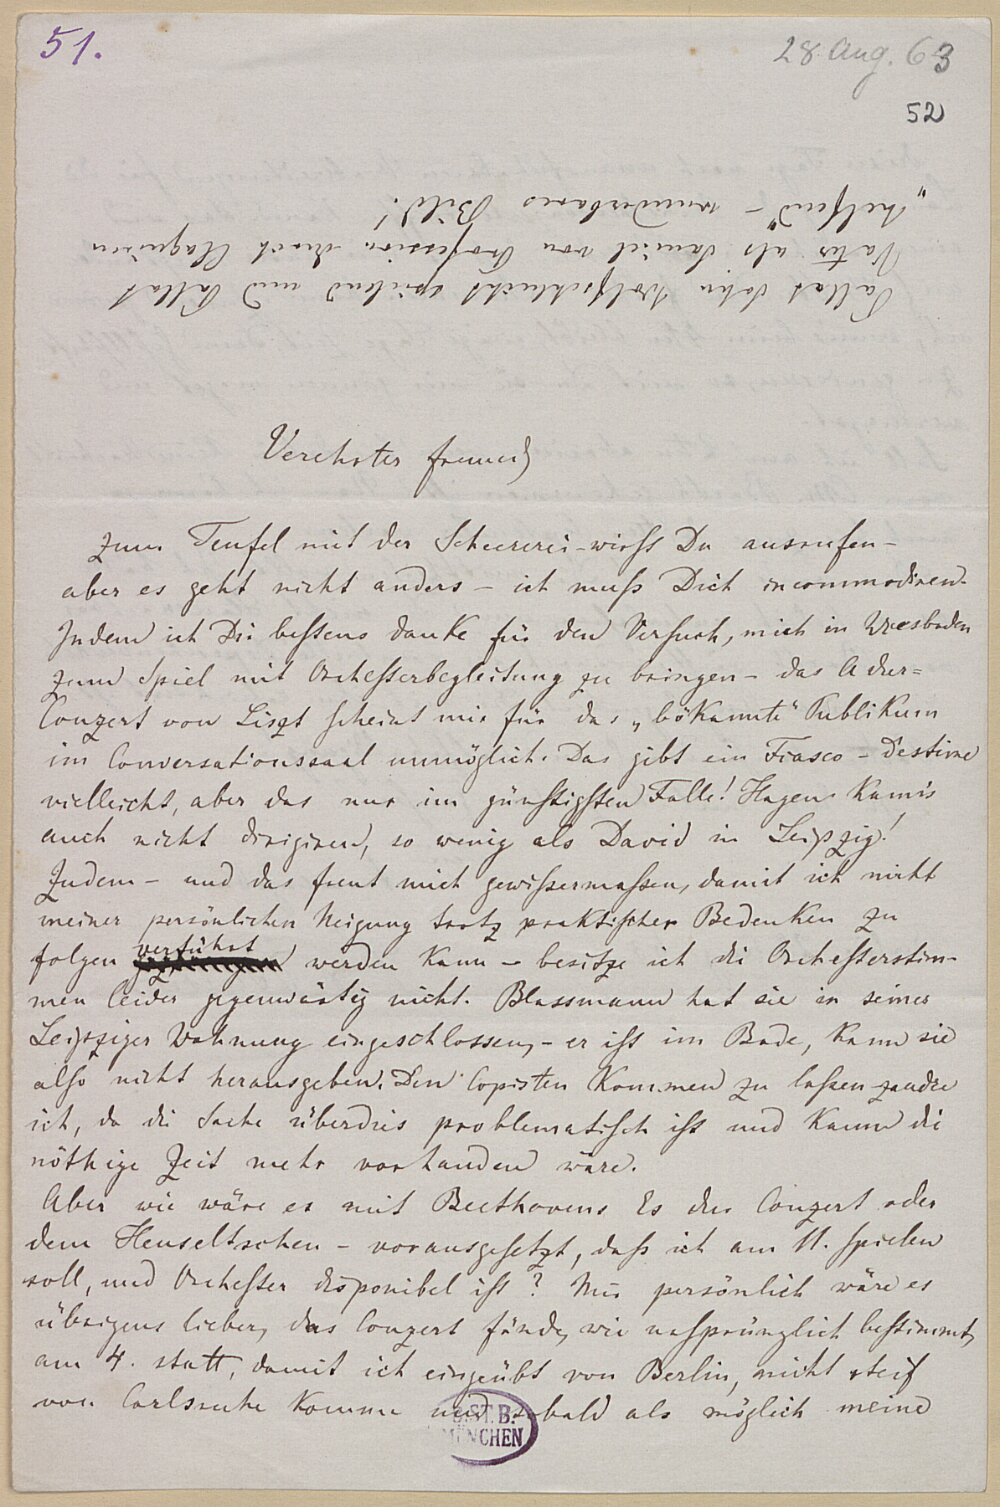 51.
28 Aug. 63
52
Pallas Sohn Wolfsschlucht spielend und Pallas
Vater als Samiel von Profession durch Claqueurn
„helfend“ – wunderbares Bild!
Verehrter Freund
Zum Teufel mit der Scheererei – wirst Du ausrufen –
aber es geht nicht anders – ich muß Dich incommodiren.
Indem ich Dir bestens danke für den Versuch, mich in Wiesbaden
zum Spiel mit Orchesterbegleitung zu bringen – das A dur=
Conzert von Liszt scheint mir für das „bökannte“ Publikum
im Conversationssaal unmöglich. Das gibt ein Fiasco – d'estime
vielleicht, aber das nur im günstigsten Falle! Hagen kann's
auch nicht dirigiren, so wenig als David in Leipzig!
Zudem – und das freut mich gewissermassen, damit ich nicht
meiner persönlichen Neigung trotz praktischer Bedenken zu
folgen verführt werden kann – besitze ich die Orchesterstim-
men leider gegenwärtig nicht. Blassmann hat sie in seiner
Leipziger Wohnung eingeschlossen, – er ist im Bade, kann sie
also nicht herausgeben. Den Copisten kommen zu lassen zaudre
ich, da die Sache überdies problematisch ist und kaum die
nöthige Zeit mehr vorhanden wäre.
Aber wie wäre es mit Beethovens Es dur Conzert oder
dem Henseltschen – vorausgesetzt, daß ich am 11. spielen
soll, und Orchester disponibel ist? Mir persönlich wäre es
übrigens lieber, das Conzert fände, wie ursprünglich bestimmt,
am 4. statt, damit ich eingeübt von Berlin, nicht steif
von Carlsruhe komme und sobald als möglich meine
B.ST.B.
MÜNCHEN